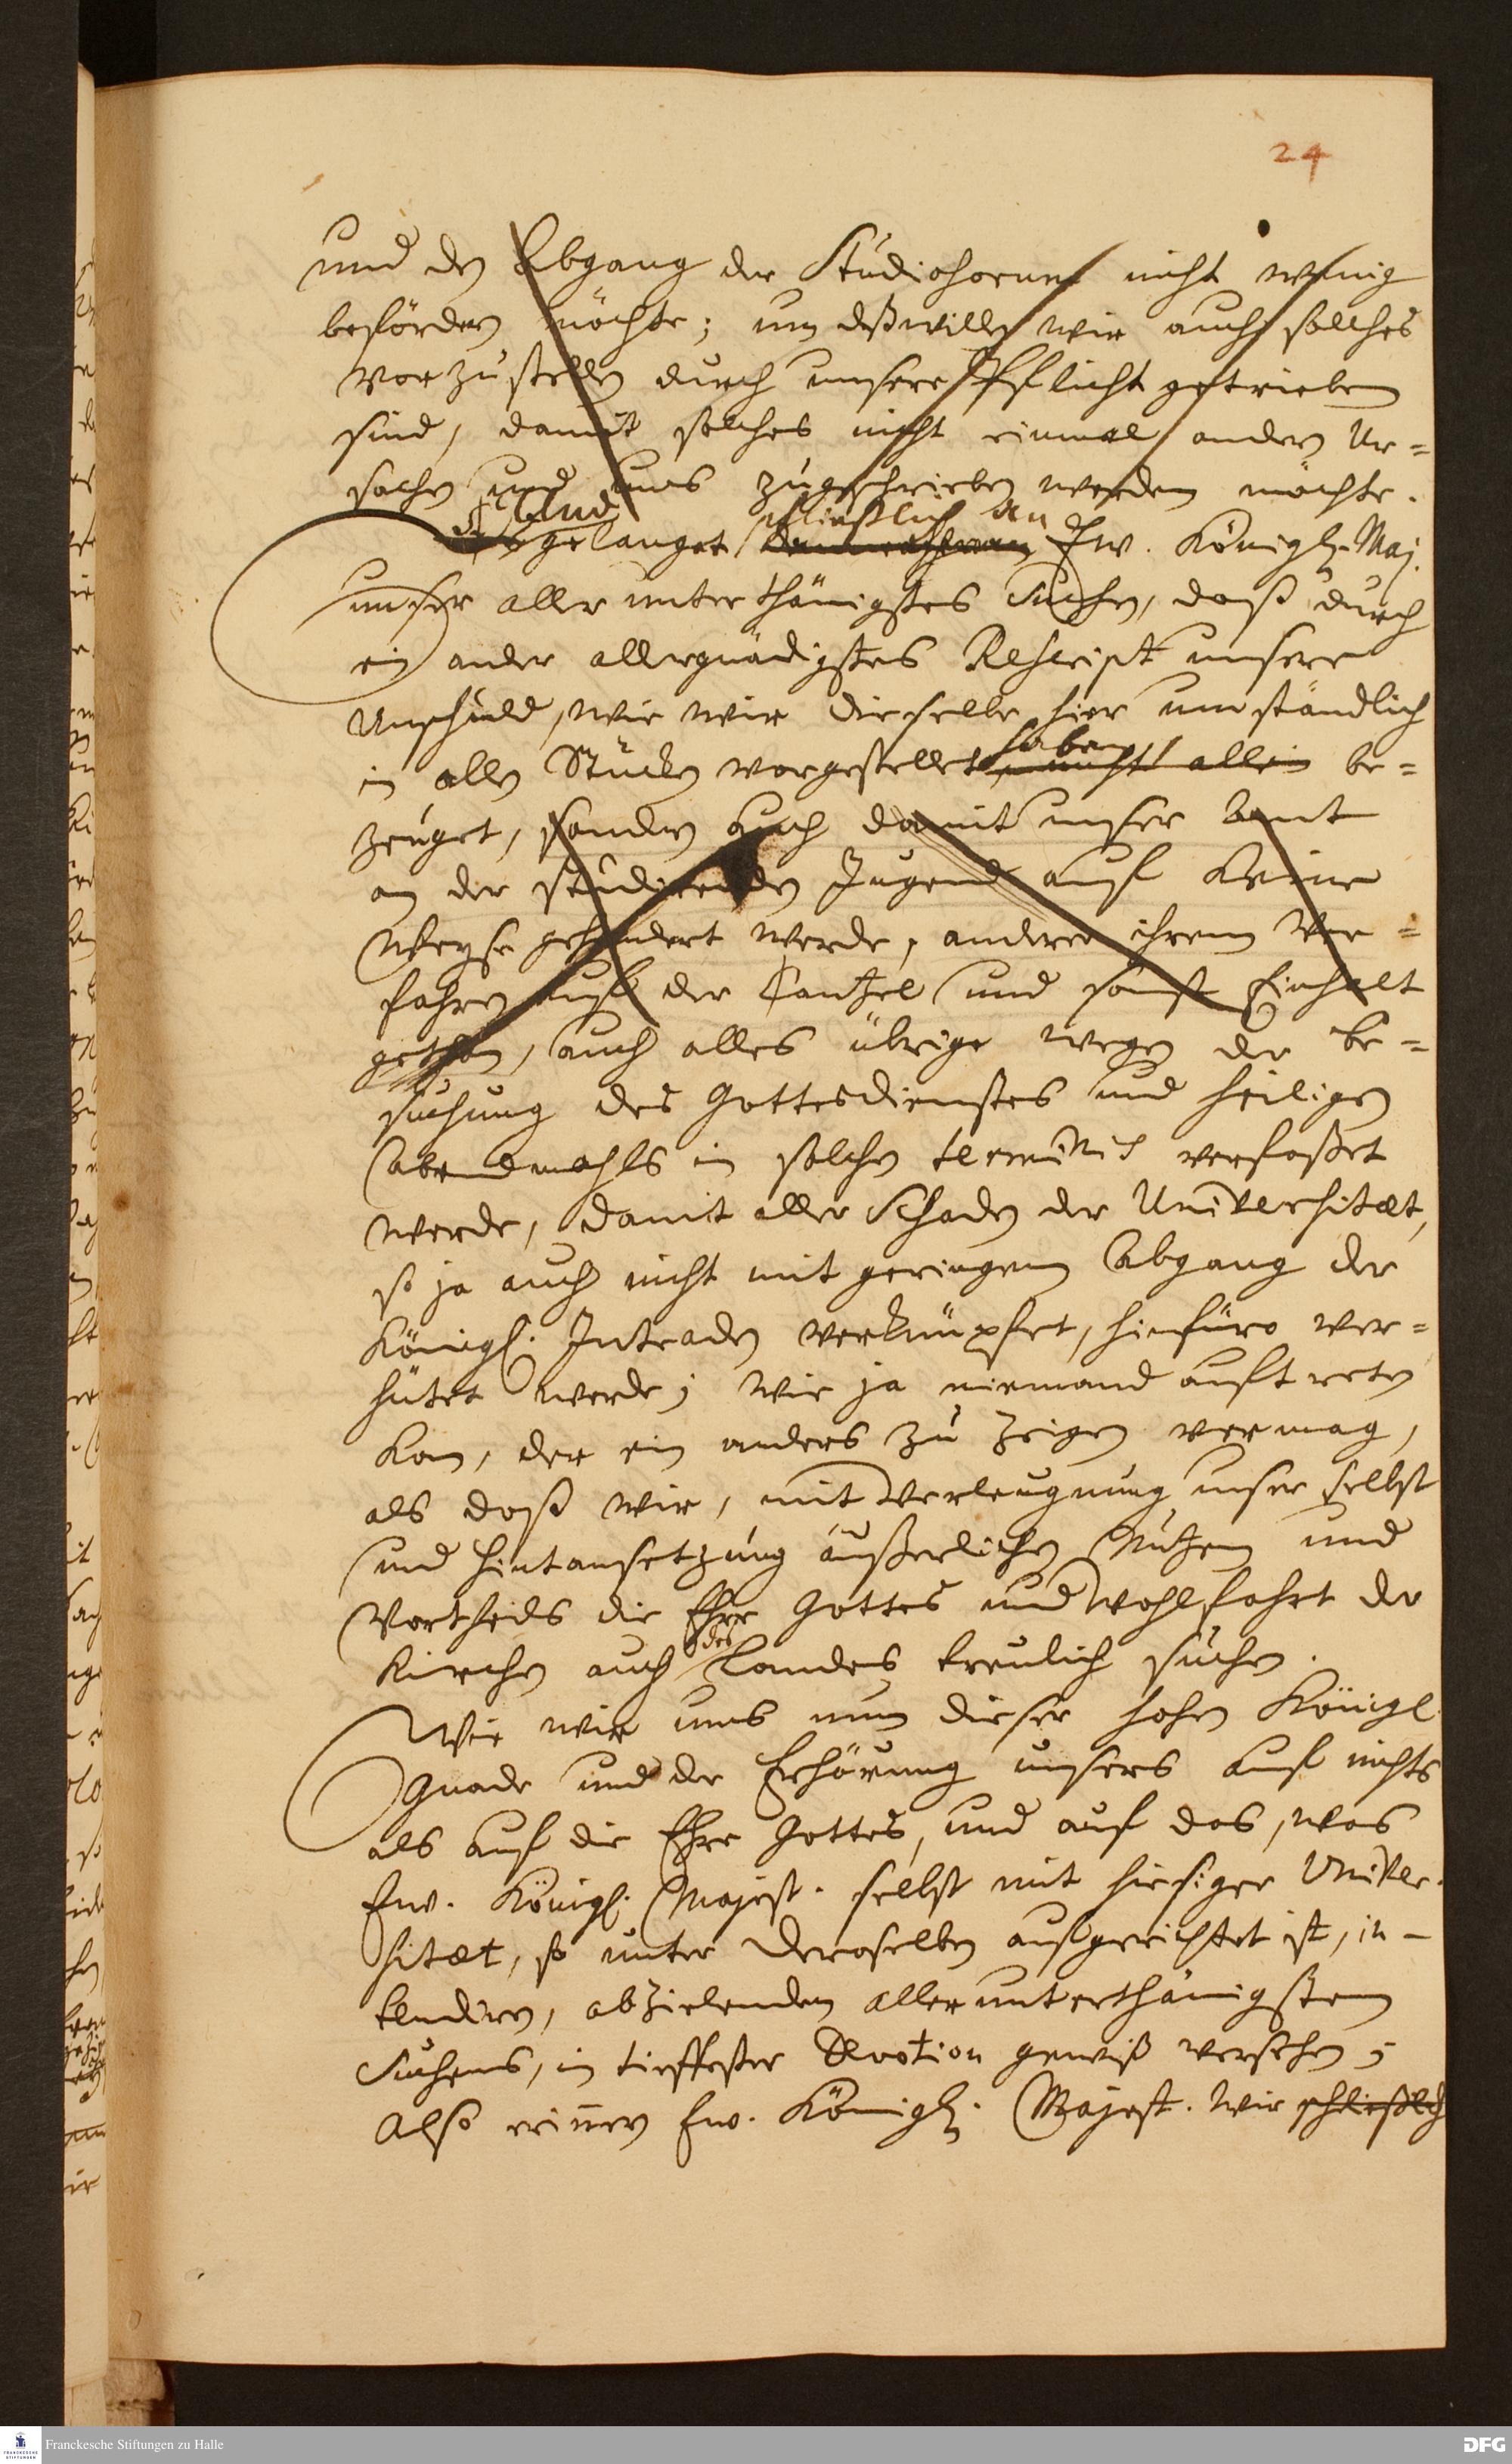 24
und den Abgang der Studiosorum nicht wenig
befördern möchte; um deßwillen wir auch solches
vorzustellen durch unsere Pflicht getrieben
sind, damit solches nicht einmal andern Ur=
sachen und uns zugeschrieben werden möchte.
Und schließlich an
gelanget Ew. Königl. Maj.
unser aller unterthänigstes Suchen, daß durch
ein ander allergnädigstes Rescript unsere
Unschuld, wie wir dieselbe hier umständlich
haben
in allen Stücken vorgestellet, nicht allein be=
zeuget, sondern auch damit unser Amt
an der studirenden Jugend auf keine
Weyse gehindert werde, andere ihrem Ver=
fahren auf der Cantzel und sonst Einhalt
gethan, auch alles übrige wegen der Be=
suchung des Gottesdienstes und heiligen
Abendmahls in solchen terminis verfasset
werde, damit aller Schaden der Universitæt,
so ja auch nicht mit geringem Abgang der
Königl. Intraden verknüpfet, hinfüro ver=
hütet werde; wie ja niemand auftreten
kan, der ein anders zu zeigen vermag,
als daß wir, mit Verleugnung unser selbst
und Hintansetzung äußerlichen Nutzen und
Vortheils die Ehre Gottes und Wohlfahrt der
des
Kirchen auch Landes treulich suchen.
Wie wir uns nun dieser hohen Königl.
Gnade und der Erhörung unsers auf nichts
als auf die Ehre Gottes, und auf das, was
Ew. Königl. Majest. selbst mit hiesiger Univer-
sitæt, so unter deroselben aufgerichtet ist, in-
tendiren, abzielenden allerunterthänigsten
Suchens, in tieffester Devotion gewiß versehen;
Also Ew. Königl. Majest. wir schließlich
Franckesche Stiftungen zu Halle
DFG